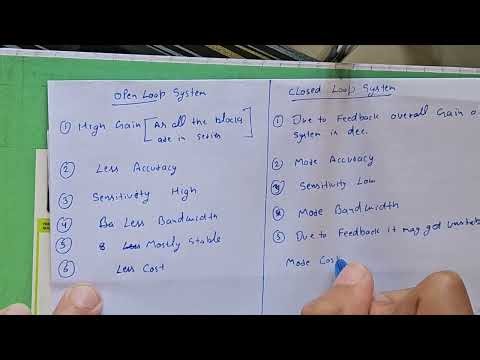 Open Loop System
① High Gain [As all the blocks
are in series]
② Less Accuracy
③ Sensitivity High
④ Less Bandwidth
⑤ Mostly Stable
⑥ Less Cost
Closed Loop System
① Due to Feedback overall Gain o
System in dec.
② More Accuracy
Sensitivity Low
More Bandwidth
⑤ Due to Feedback it may get
More Cost